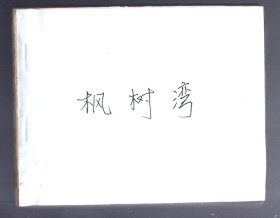 枫树湾